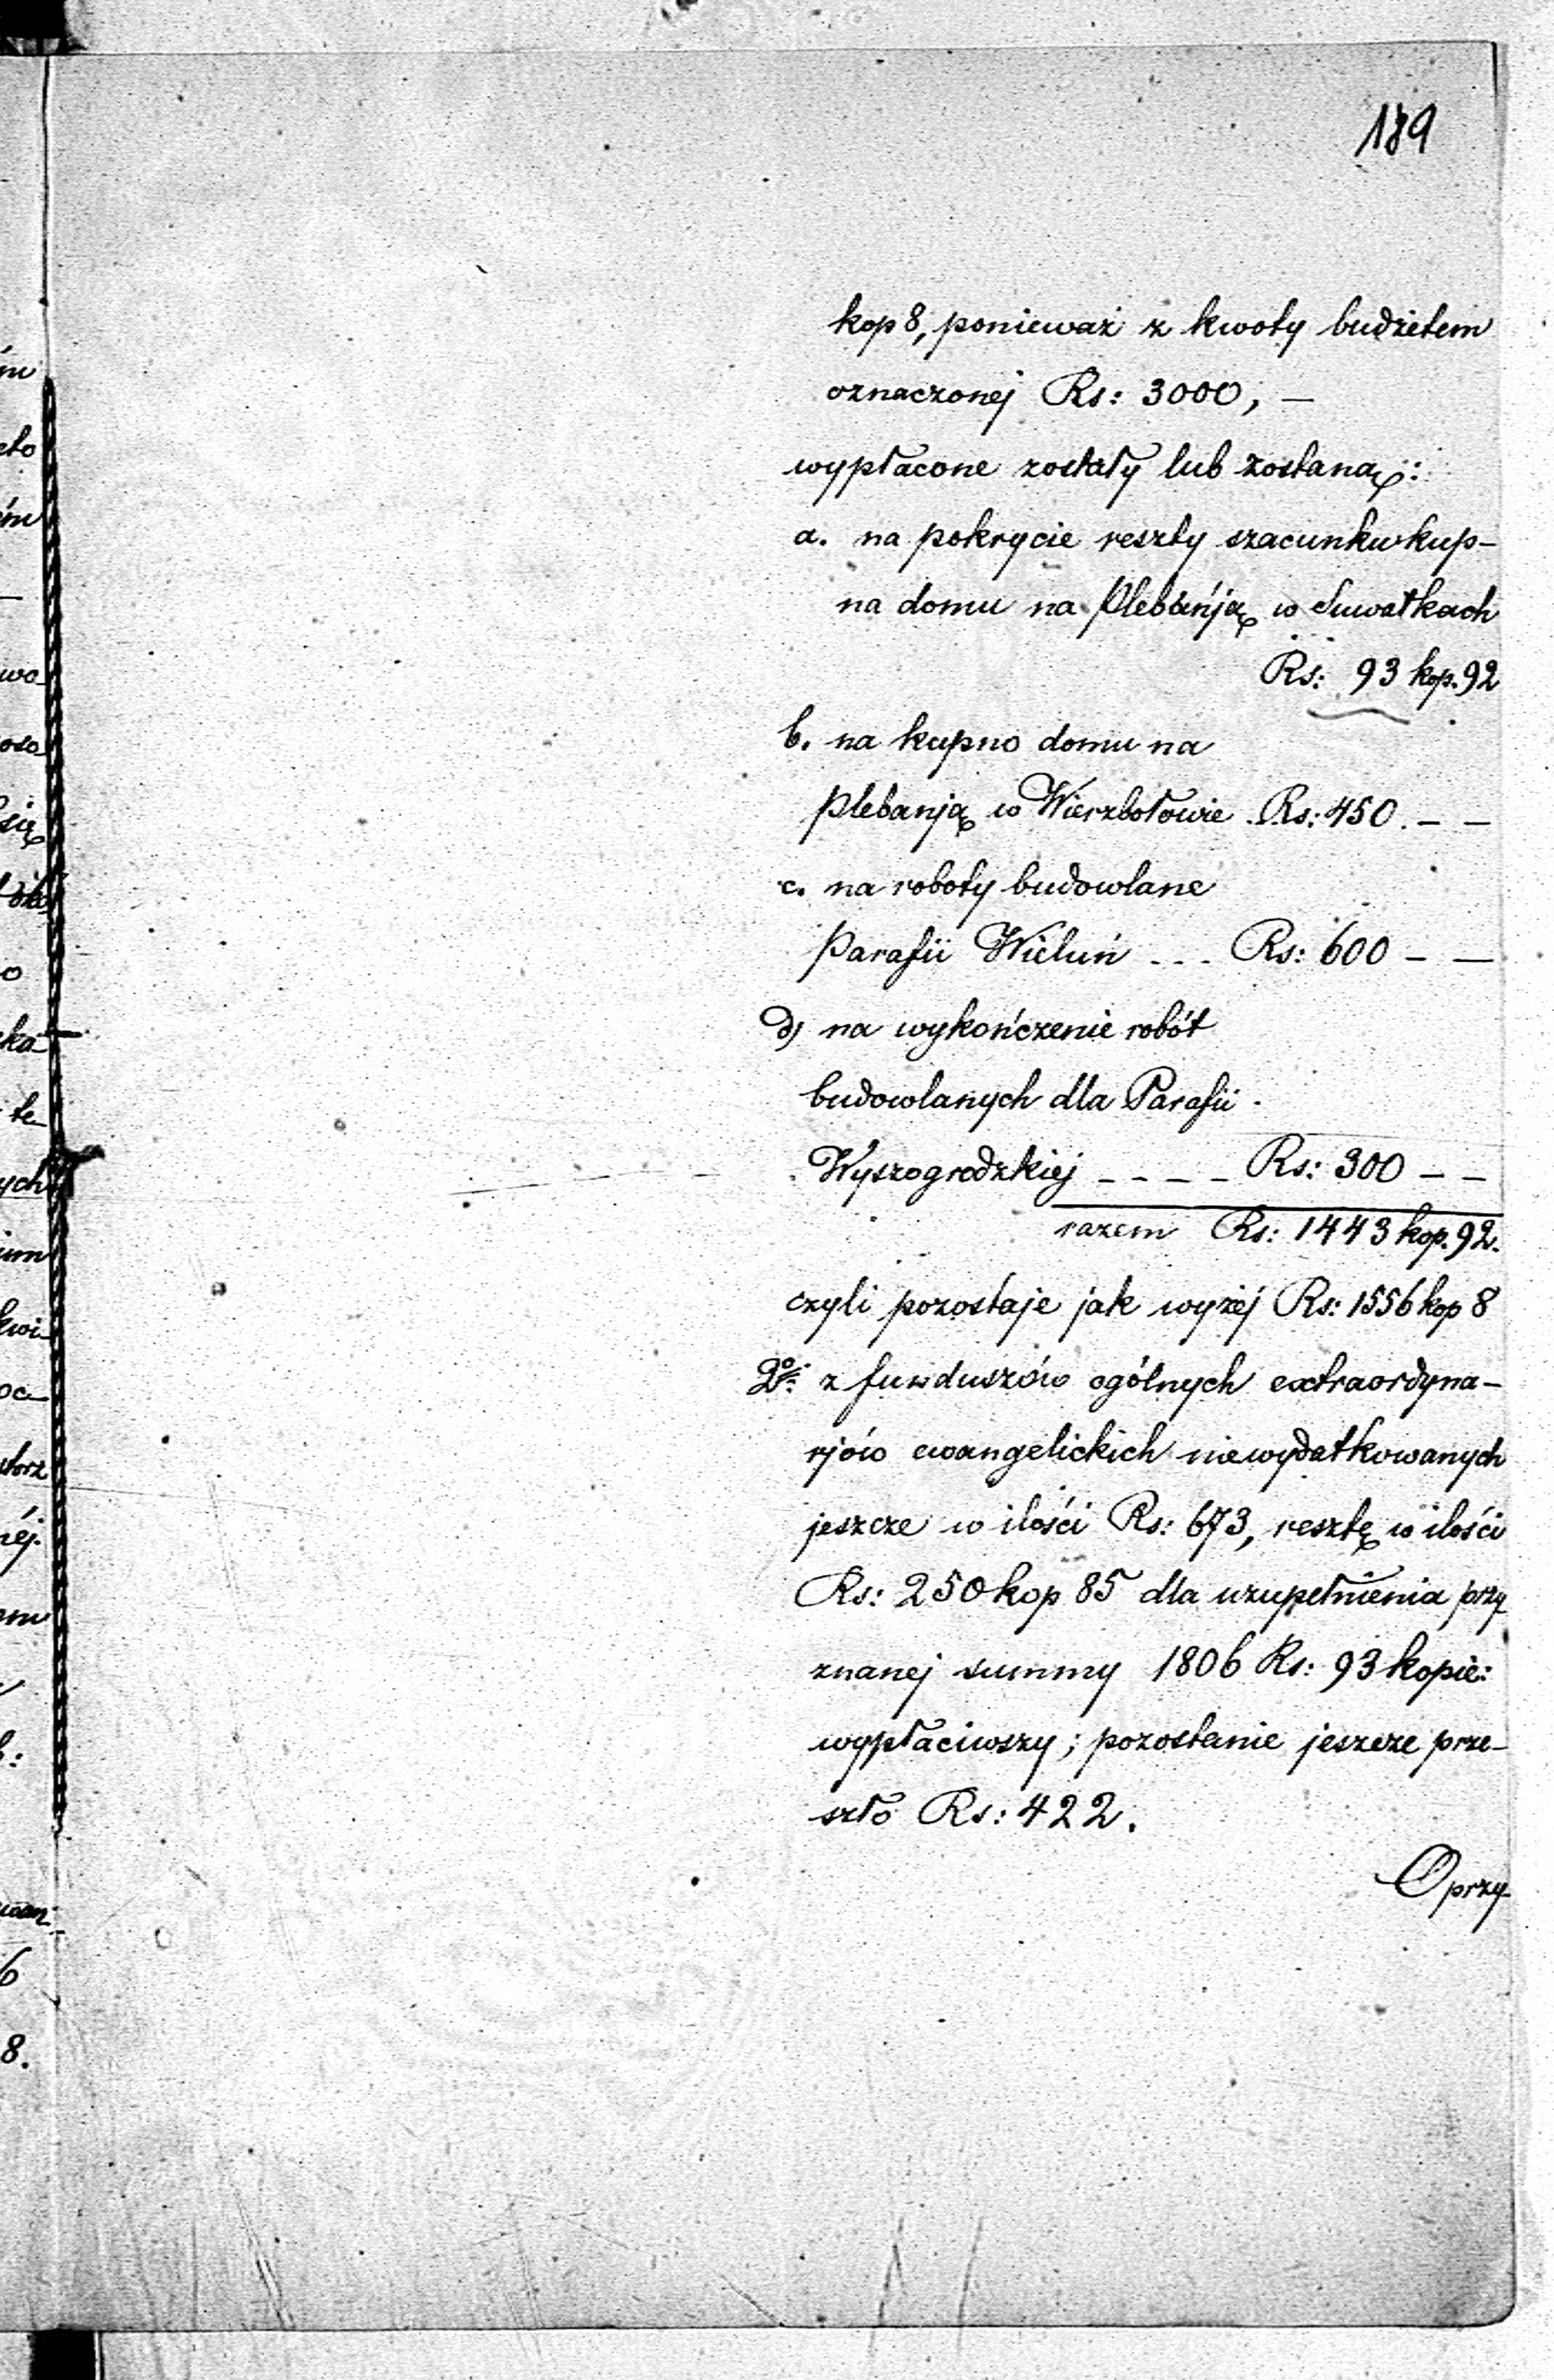 189
kop 8, ponieważ z kwoty budżetem
oznaczonej Rs: 3000, —
wypłacone zostały lub zostaną:
a. na pokrycie reszty szacunku kup-
na domu na Plebańją w Suwałkach
Rs: 93 kop. 92
b. na kupno domu na
Plebanją w Wierzbołowie . Rs: 450. — —
c. na roboty budowlane
Parafii Wieluń - - - Rs: 600 — —
d) na wykończenie robót
budowlanych dla Parafii
Wyszogrodzkiej - - - - Rs: 300 — —
razem Rs: 1443 kop. 92.
czyli pozostaje jak wyżej Rs: 1556 kop 8
2o: z funduszów ogólnych extraordyna-
rjów ewangelickich niewydatkowanych
jeszcze w ilości Rs: 673, resztę w ilości
Rs: 250 kop 85 dla uzupełnienia przy
znanej summy 1806 Rs: 93 kopie:
wypłaciwszy; pozostanie jeszcze prze-
szło Rs: 422.
O przy-